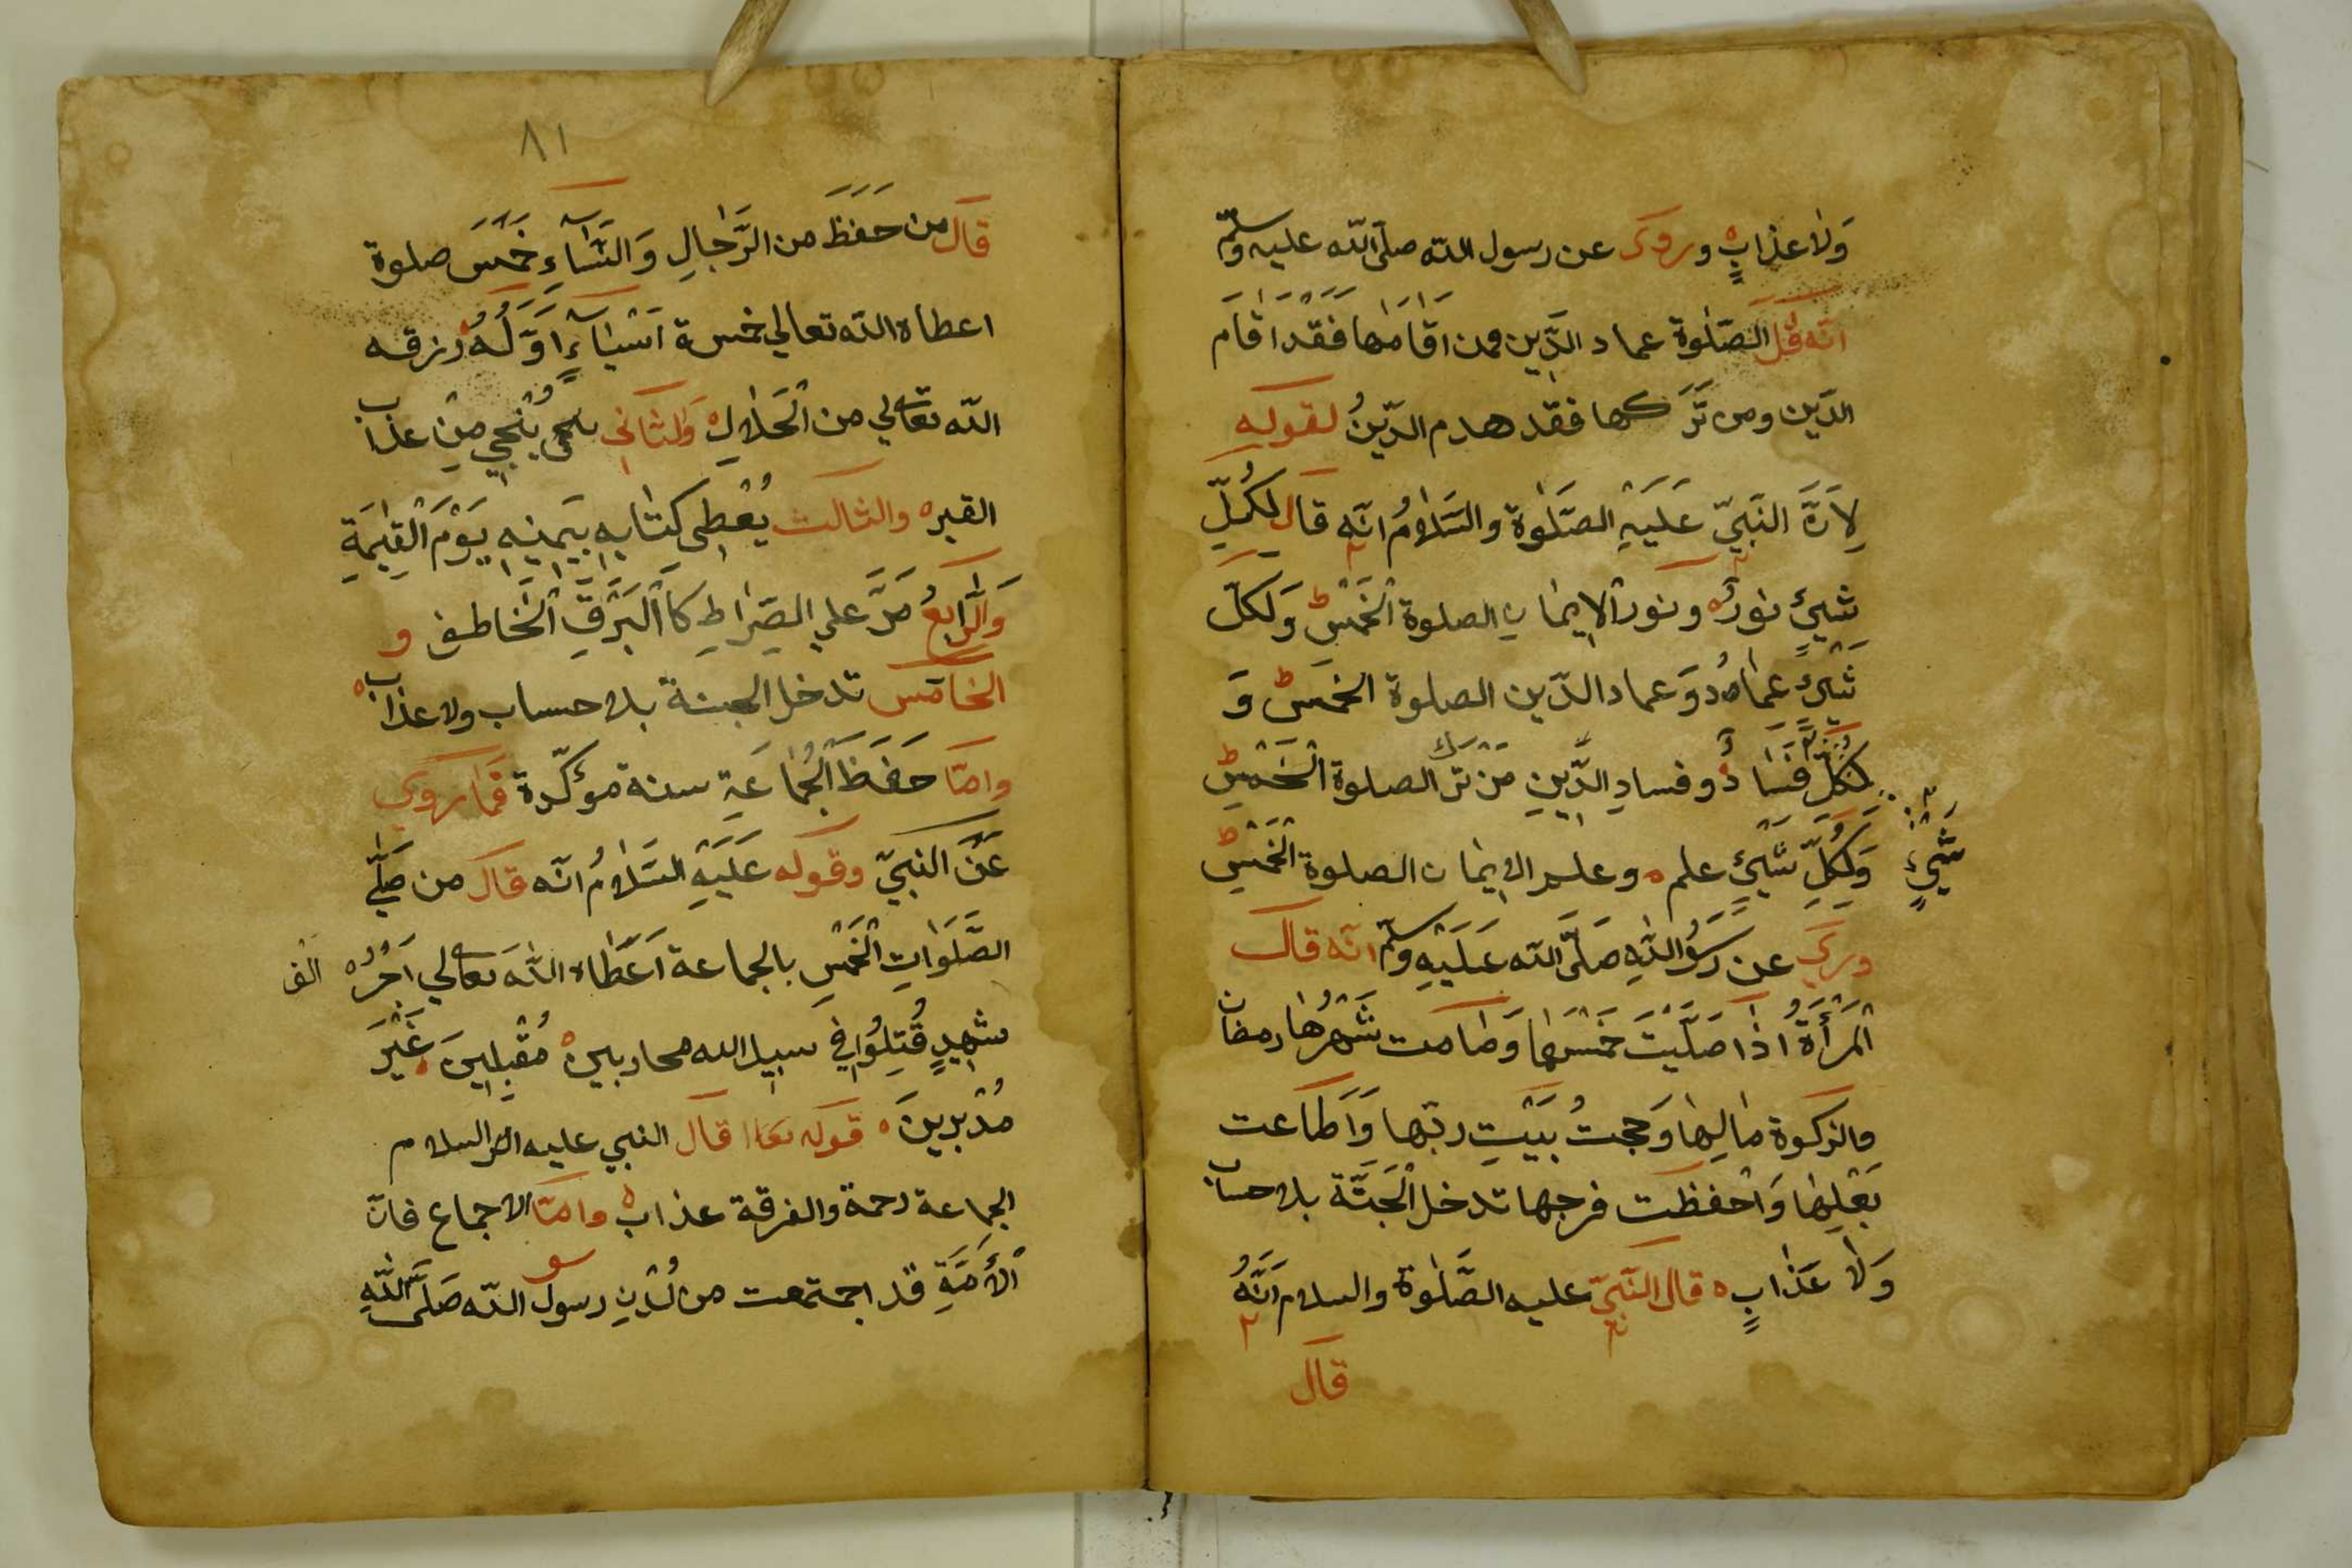 وَلا عذابٍ ٥ وروى عن رسول الله صلى الله عليه وسلم
انه قال الصّلوة عماد الدّين فمن اقامها فقد اقام
الدّين ومن تركها فقد هدم الدّينُ لقوله
لِاَنَّ النَّبِيّ عَلَيْهِ الصَّلوة والسَّلامُ انّه قال لِكُلِّ
شيئٍ نور ٥ ونور الايمان الصلوة الْخَمْس وَلكلّ
شَيئٍ عمادُ وَعماد الدّين الصلوة الخمس وَ
لِكُلِّ فَسَادٌ وفسادِ الدّينِ مَنْ ترك الصلوة الْخَمْسِ
شَيْئٍ
وَلِكُلِّ شَيْئٍ علم ٥ وعلم الايمان الصلوة الْخَمْسِ
وروي عن رَسُولُ اللهِ صَلَّى الله عَلَيْهِ وسلم انّه قال
الْمَرْأَةُ اذا صَلَّيْتَ خَمْسَهَا وَصَامت شَهْرُهَا رمضان
والزكوة مَالِهَا وَحجتُ بَيْتِ ربّها وَاَطَاعت
بَعْلِهَا وَاحْفظت فرجها تدخل الْجَنَّة بلا حساب
وَلا عَذابٍ ٥ قال النَّبِيّ عليه الصَّلوة والسلام اَنَّهُ
قال
٨١
قال من حَفَظَ من الرِّجالِ وَالنّسَاءِ خَمْسَ صلوة
اعطاه الله تعالي خمسة اَشْيَاءٍ اَوَّلُهُ رزقه
الله تعالي من الْحَلالِ ٥ وَالثاني يُنْجِي مِنْ عذاب
القبر ٥ والثالث يُعْطِى كتابه بِيَمِينِهِ يَوْمَ الْقِيٰمَةِ
وَالرّابعُ مَرَّ علي الصِّراطِ كَاْلبَرْقِ الْخاطف و
الخامس تدخل الجنة بلا حساب ولا عذاب ٥
وامّا حَفَظَ الْجُمَاعَةِ سنة مؤكّدة فَمَا روي
عَنِ النبيّ وقوله عَلَيْهِ السَّلامُ انّه قال من صَلّي
الصَّلَوَاتِ الْخَمْسِ بالجماعة اَعْطَاه اللهَ تعالي اَجْرُ ٥ الف
شهيدٍ قُتِلُوا في سبيل الله محاربين ٥ مُقْبِلِينَ ٥ غَيْرَ
مُدْبِرِينَ ٥ قوله تعا قال النبي عليه الص السلام
الجماعة رحمة والفرقة عذاب ٥ وامّا الاجماع فانّ
الْأُمَّةِ قد اجتمعت من لَدُنِ رسول الله صَلَّى اللهِ